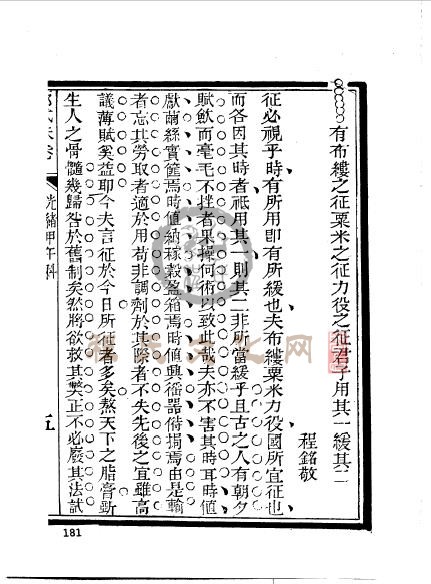 有布縷之征粟米之征力役之征君子用其一緩其二
程銘敬
征必視乎時有所用即有所緩也夫布縷粟米力役國所宜征也
而各因其時者祗用其一則其二非所當緩乎且古之人有朝夕
賦斂而毫毛不拂者果操何術以致此哉夫亦不害其時耳時値
獻繭絲實筐焉時値納稼穀盈箱焉時値興徭器偫挶焉由是輸
者忘其勞取者適於用苟非調劑於其際者不失先後之宜雖高
議薄賦奚益聊今夫言征於今日所征者多矣熬天下之脂膏斲
生人之骨髓幾歸咎於舊制矣然將欲救其獘正不必廢其法試
光緒甲午科
五
181